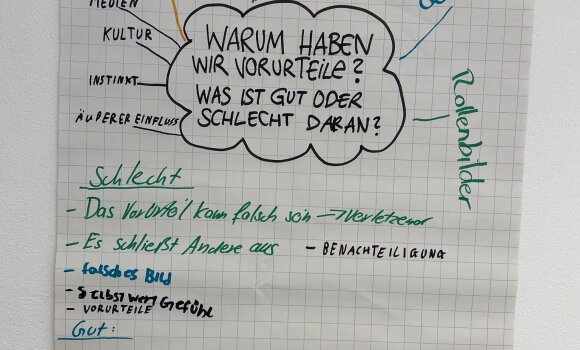 MEDIEN
KULTUR
INSTINKT
ÄUßERER EINFLUSS
WARUM HABEN
WIR VORURTEILE?
WAS IST GUT ODER
SCHLECHT DARAN?
Rollenbilder
Schlecht
- Das Vorurteil kann falsch sein → verletzend
- Es schließt Andere aus - BENACHTEILIGUNG
- falsches Bild
- Selbstwert Gefühl
- VORURTEILE
Gut: